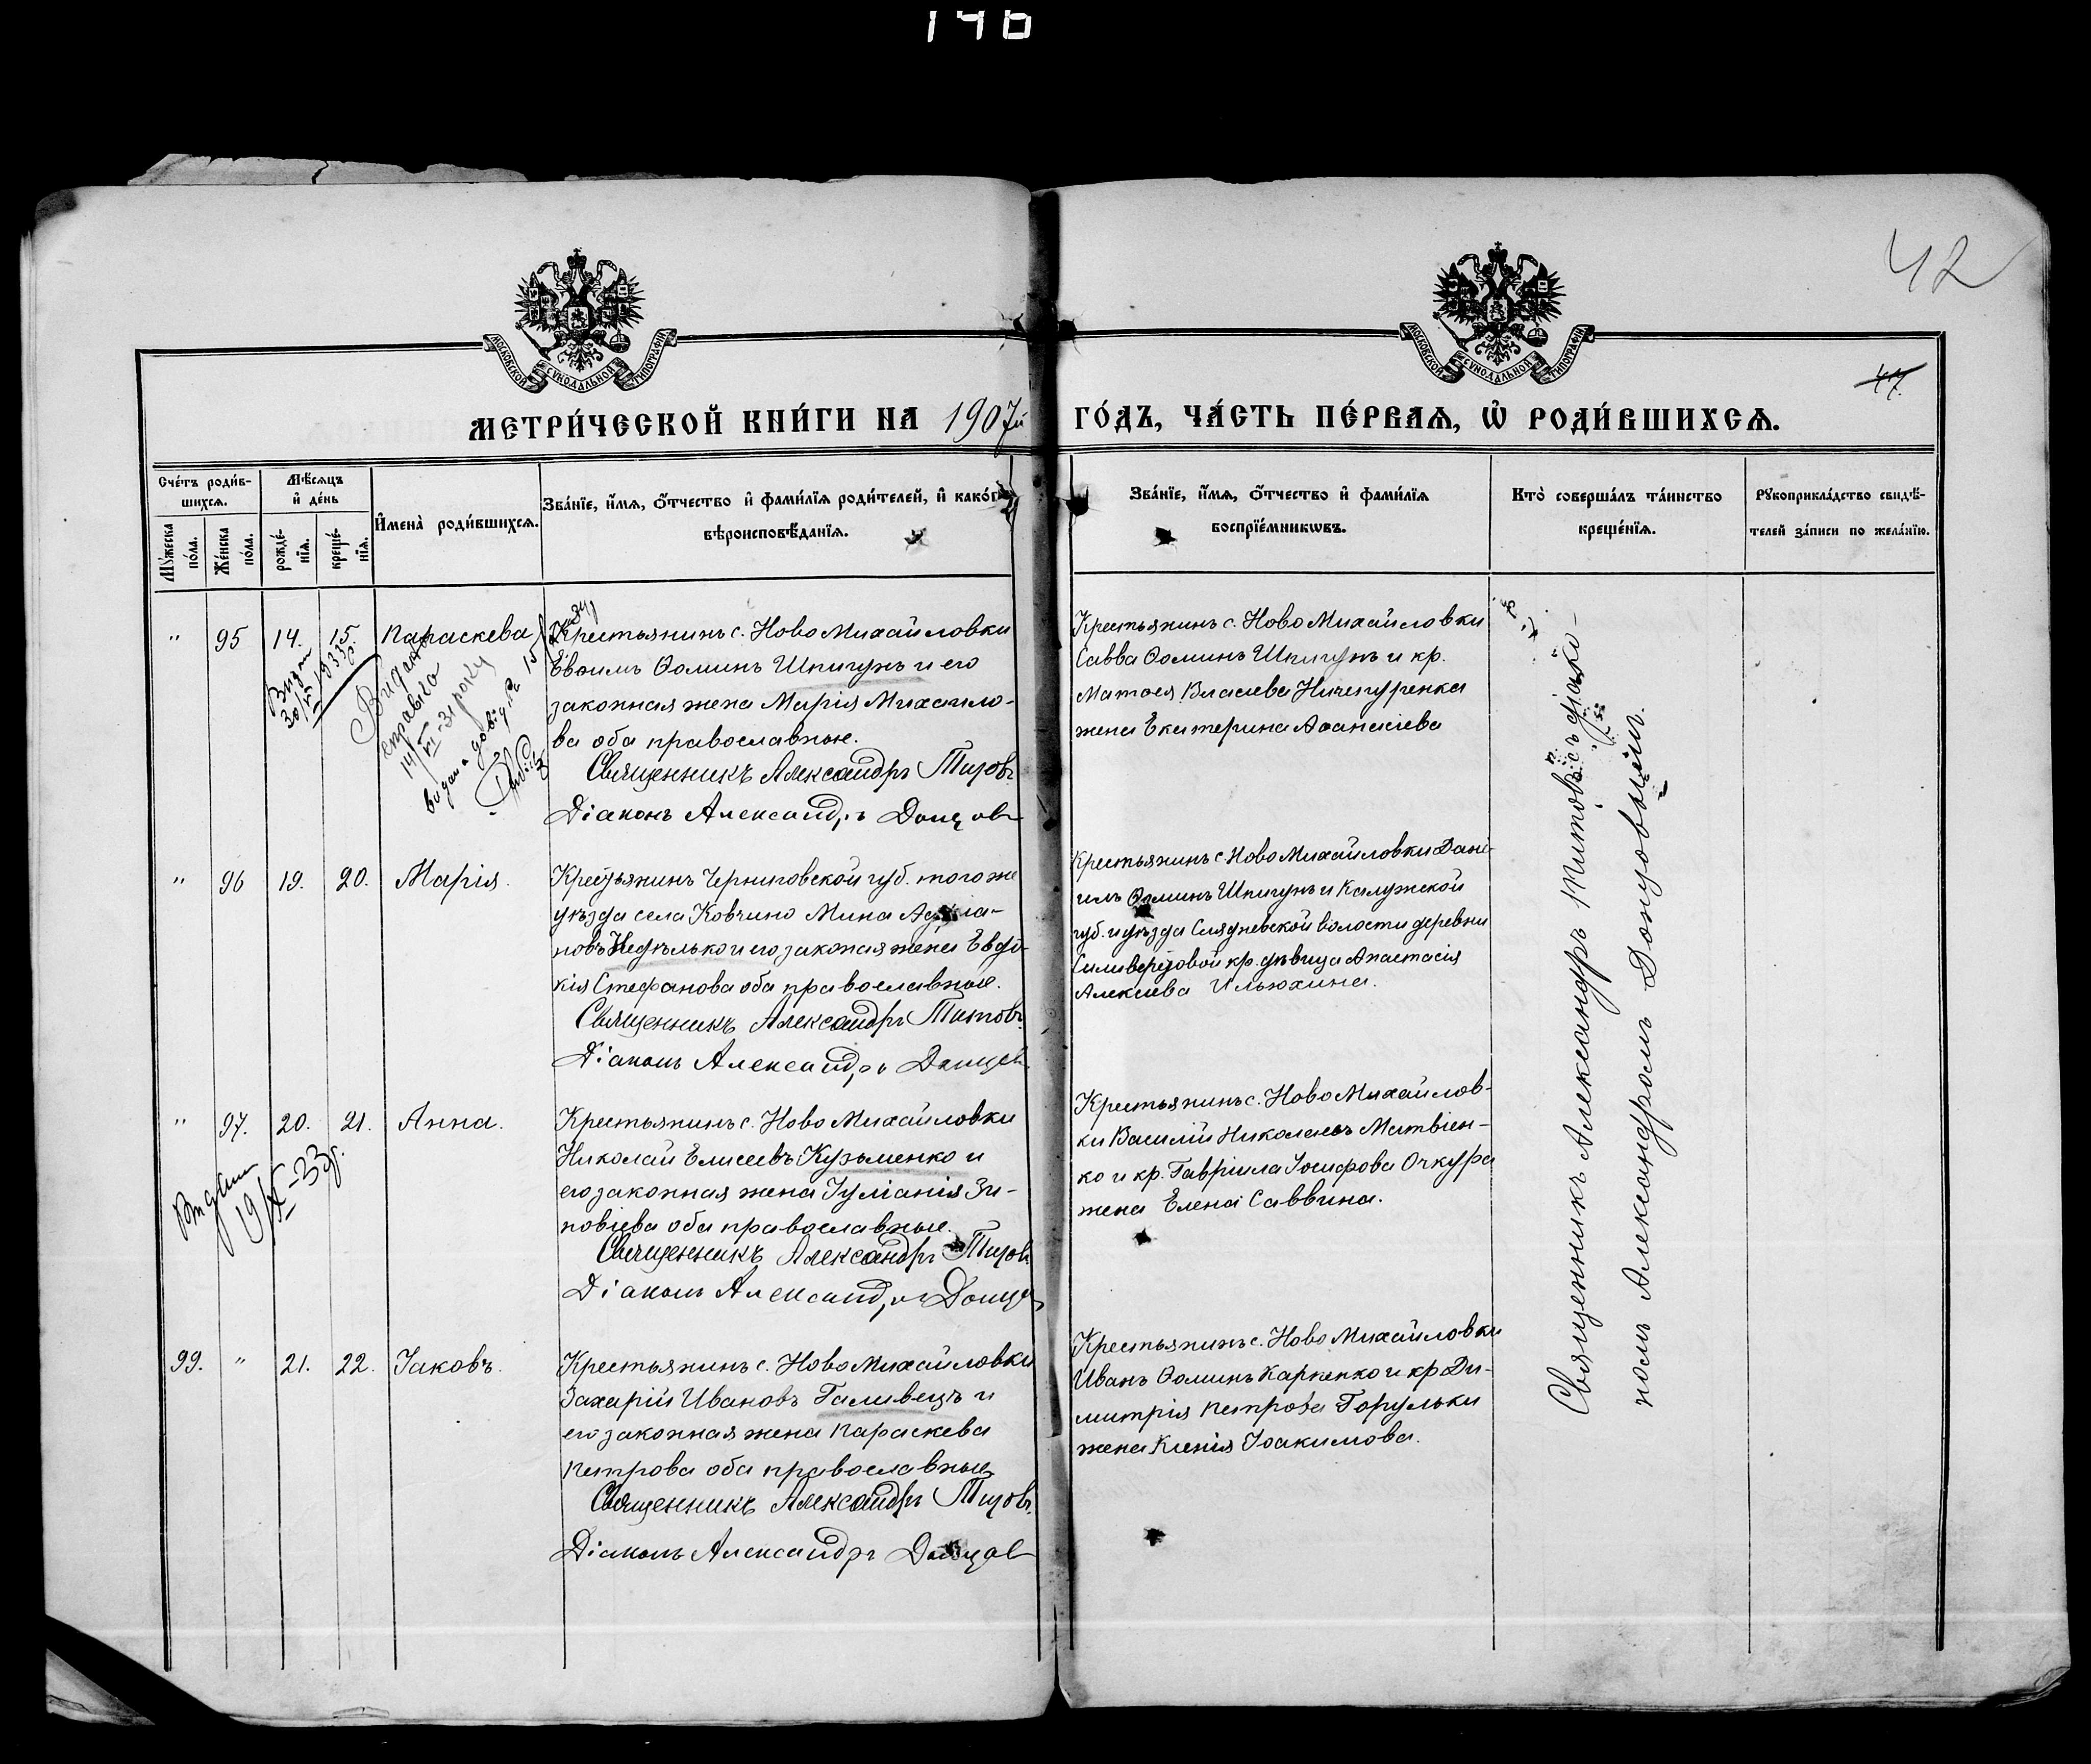 146
42
47.
МОСКОВСКОЙ СѴНОДАЛЬНОЙ ТИПОГРАФІИ
МОСКОВСКОЙ СѴНОДАЛЬНОЙ ТИПОГРАФІИ
МЕТРИ́ЧЕСКОЙ КНИ́ГИ НА 1907й ГО́ДЪ, ЧА́СТЬ ПЕ́РВАѦ, Ѡ҆ РОДИ́ВШИХСѦ.
Сче́тъ роди́в-
шихсѧ.
Мѣ́сѧцъ
и҆ де́нь
Мꙋ́жеска
по́ла.
Же́нска
по́ла.
рожде́-
нїѧ.
креще́-
нїѧ.
И҆мена̀ роди́вшихсѧ.
Зва́нїе, и҆́мѧ, ѻ҆́тчество и҆ фами́лїѧ роди́телей, и҆ како́гѡ
вѣроисповѣ́данїѧ.
Зва́нїе, и҆́мѧ, ѻ҆́тчество и҆ фами́лїѧ
воспрїе́мникѡвъ.
Кто̀ соверша́лъ та́инство
креще́нїѧ.
Рꙋкоприкла́дство свидѣ́-
телей за́писи по жела́нїю.
" 95 14. 15. Параскева
Крестьянинъ с. Ново Михайловки
Евѳимъ Ѳоминъ Шпигунъ и его
законная жена Марія Михайло-
ва оба православные.
Священникъ Александръ Титовъ
Діаконъ Александръ Донцовъ
Крестьянинъ с. Ново Михайловки
Савва Ѳоминъ Шпигунъ и кр.
Матѳея Власіева Ничипуренка
жена Екатерина Аѳанасіева
Видан
30/ 1933 р.
Видана
справка
14/VI-31 року
видана довідка
" 96 19. 20. Марія.
Крестьянинъ Черниговской губ. того же
уѣзда села Ковчино Мина
новъ Недѣлько и его законая жена Евдо-
кія Стефанова оба православные.
Священникъ Александръ Титовъ
Діаконъ Александръ Донцовъ
Крестьянинъ с Ново Михайловки Дані-
илъ Ѳоминъ Шпигунъ и Калужской
губ. и уѣзда Слядневской волости деревни
кр. дѣвица Анастасія
Алексіева Ильюхина.
" 97. 20. 21. Анна.
Крестьянинъ с. Ново Михайловки
Николай Елисеевъ Кузьменко и
его законная жена Іуліанія Зи-
новіева оба православные.
Священникъ Александръ Титовъ
Діаконъ Александръ Донцовъ
Крестьянинъ с. Ново Михайлов-
ки Василій Николаевъ Матвіен-
ко и кр. Гавріила Іосифова Очкура
жена Елена Саввина.
Видан
19/X-33 р.
99. " 21. 22. Іаковъ.
Крестьянинъ с. Ново Михайловки
Захарій Ивановъ Галивецъ и
его законная жена Параскева
Петрова оба православные
Священникъ Александръ Титовъ
Діаконъ Александръ Донцовъ
Крестьянинъ с. Ново Михайловки
Иванъ Ѳоминъ Карпенко и кр Ди-
митрія Петрова Горульки
жена Ксенія Іоакимова.
Священникъ Александръ Титовъ съ діако-
номъ Александромъ Донцовымъ.